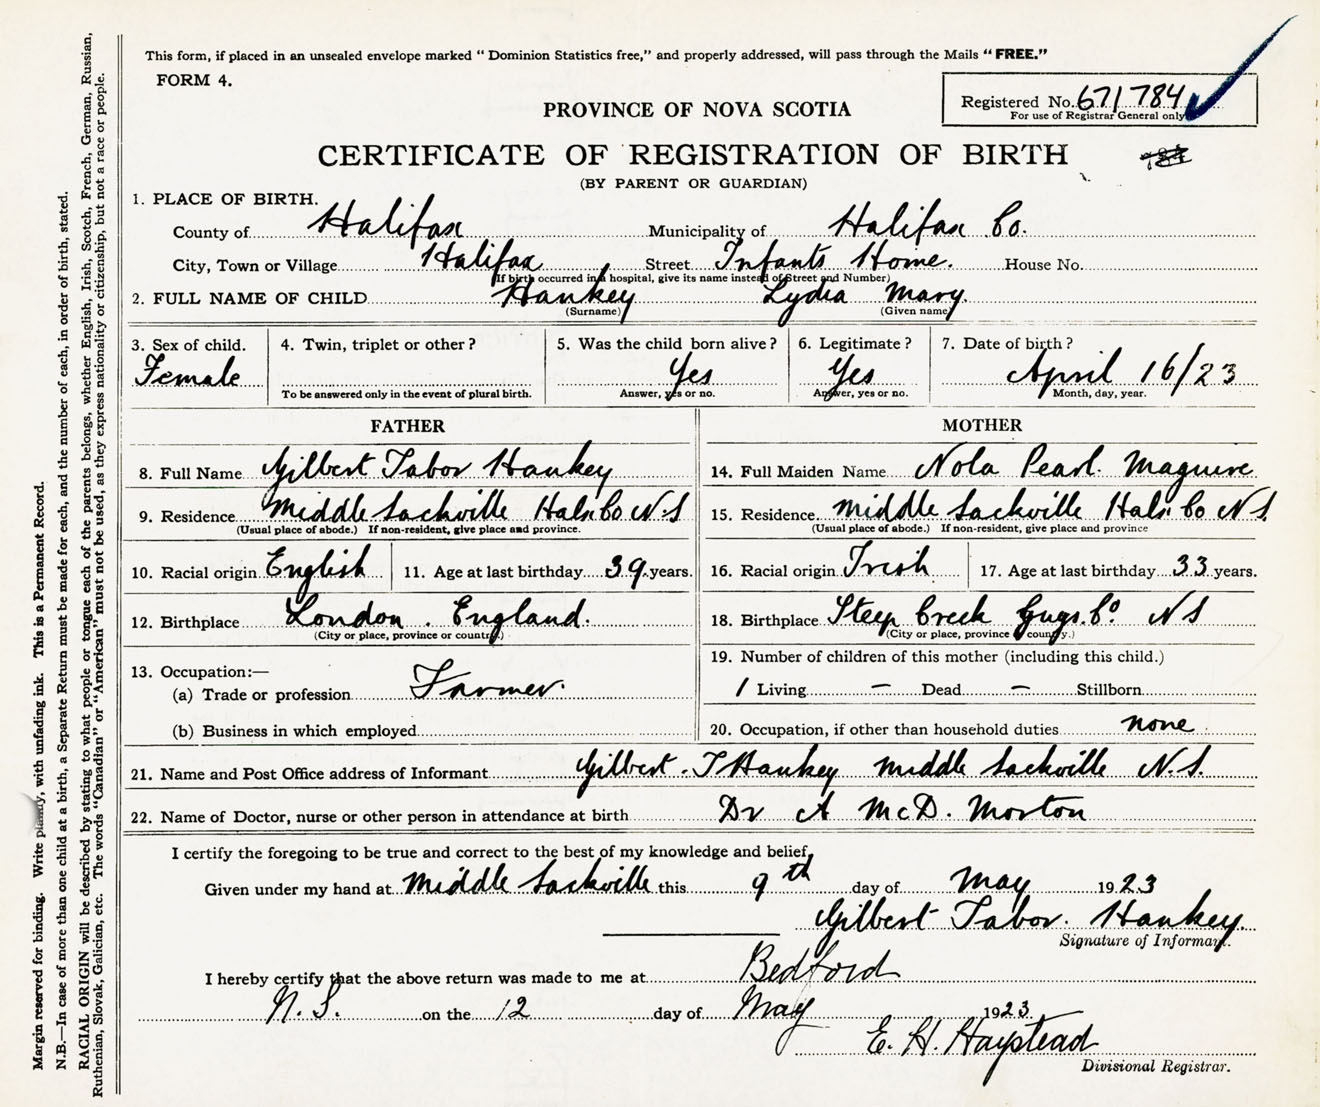 This form, if placed in an unsealed envelope marked “Dominion Statistics free,” and properly addressed, will pass through the Mails “FREE.”
FORM 4.
Registered No. 671784
For use of Registrar General only
PROVINCE OF NOVA SCOTIA
CERTIFICATE OF REGISTRATION OF BIRTH
(BY PARENT OR GUARDIAN)
1. PLACE OF BIRTH.
County of Halifax Municipality of Halifax Co.
City, Town or Village Halifax Street Infants Home. House No.
(If birth occurred in a hospital, give its name instead of Street and Number)
2. FULL NAME OF CHILD Hankey Lydia Mary.
(Surname) (Given name)
3. Sex of child. 4. Twin, triplet or other? 5. Was the child born alive? 6. Legitimate? 7. Date of birth?
Female Yes Yes April 16/23
To be answered only in the event of plural birth. Answer, yes or no. Answer, yes or no. Month, day, year.
FATHER MOTHER
8. Full Name Gilbert Tabor Hankey 14. Full Maiden Name Nola Pearl. Maguire
9. Residence Middle Sackville Hals. Co N.S 15. Residence Middle Sackville Hals. Co N S.
(Usual place of abode.) If non-resident, give place and province. (Usual place of abode.) If non-resident, give place and province
10. Racial origin English 11. Age at last birthday 39 years. 16. Racial origin Irish 17. Age at last birthday 33 years.
12. Birthplace London. England. 18. Birthplace Steep Creek Guys. Co N S
(City or place, province or country.) (City or place, province or county.)
19. Number of children of this mother (including this child.)
13. Occupation:—
(a) Trade or profession Farmer. 1 Living – Dead – Stillborn
(b) Business in which employed 20. Occupation, if other than household duties none
21. Name and Post Office address of Informant Gilbert. T Hankey Middle Sackville N.S.
22. Name of Doctor, nurse or other person in attendance at birth Dr A McD. Morton
I certify the foregoing to be true and correct to the best of my knowledge and belief,
Given under my hand at Middle Sackville this 9th day of May 1923
Gilbert Tabor. Hankey.
Signature of Informant.
I hereby certify that the above return was made to me at Bedford
N.S. on the 12 day of May 1923.
E. H. Haystead
Divisional Registrar.
Margin reserved for binding. Write plainly, with unfading ink. This is a Permanent Record.
N.B.—In case of more than one child at a birth, a Separate Return must be made for each, and the number of each, in order of birth, stated.
RACIAL ORIGIN will be described by stating to what people or tongue each of the parents belongs, whether English, Irish, Scotch, French, German, Russian,
Ruthenian, Slovak, Galician, etc. The words “Canadian” or “American” must not be used, as they express nationality or citizenship, but not a race or people.